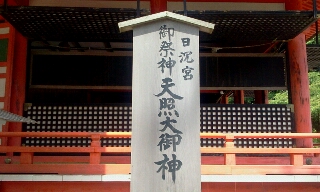 日沉宮
御祭神天照大御神